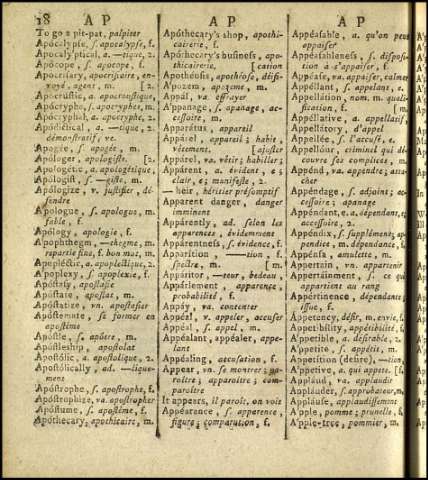 18 A P
A P
A P
To go a pit-pat, palpiter
Apócalypse, s. apocalypse, f.
Apocaly'ptical, a. —tique, 2.
Apócope, s. apocope, f.
Apocrisary, apocrisiaire, en-
voyé, agent, m. [2.
Apocrustic, a. apocroustique,
Apócryphe, s. apocryphes, m.
Apócryphal, a. apocryphe, 2.
Apodíctical, a. —tique, 2.
démonstratif ve.
Apogée, s. apogée, m.
Apóloger, apologiste. [2.
Apologétic, a. apologétique,
Apólogist, s. —giste, m.
Apólogize, v. justifier, dé-
fendre
Apologue, s. apologue, m.
fable, f.
Apólogy, apologie, f.
Apophthegm, —thegme, m.
repartie fine, f. bon mot, m.
Apopléctic, a. apoplectique, 2.
A'poplexy, s. apoplexie, f.
Apóstasy, apostasie
Apóstate, apostat, m.
Apóstatize, va. apostasier
Apóstemate, se former en
apostème
Apóstle, s. apôtre, m.
Apóstleship, apostolat
Apostólic, a. apostolique, 2.
Apostólically, ad. —lique-
ment
Apóstrophe, s. apostrophe, f.
Apóstrophize, va. apostropher
Apóstume, s. apostème, f.
Apóthecary, apothicaire, m.
Apóthecary's shop, apothi-
cairerie, f.
Apóthecary's business, apo-
thicairerie. [cation
Apothéosis, apothéose, déifi-
A'pozem, apozème, m.
Appál, va. effrayer
A'ppanage, s. apanage, ac-
cessoire, m.
Apparátus, appareil
Appárel, appareil; habit,
vêtement. [ajuster
Appárel, va. vêtir; habiller;
Appárent, a. évident, e;
clair, e; manifeste, 2.
— heir, héritier présomptif
Apparent danger, danger
imminent
Appárently, ad. selon les
apparences, évidemment
Appárentness, s. évidence, f.
Apparition, —tion, f.
spectre, m. [m.
Appáritor, —teur, bedeau,
Appárlement, apparence,
probabilité, f.
Appáy, va. contenter
Appéal, v. appeler, accuser
Appéal, s. appel, m.
Appéalant, appéaler, appe-
lant
Appéaling, accusation, f.
Appear, vn. se montrer; pa-
roître; apparoître; com-
paroître
It appears, il paroît, on voit
Appéarance, s. apparence, f.
figure; comparution, f.
Appéasable, a. qu'on peut
appaiser
Appéasableness, s. disposi-
tion à s'appaiser, f.
Appéase, va. appaiser, calmer
Appéllant, s. appelant, e.
Appellátion, nom, m. quali-
fication, f. [m.
Appéllative, a. appellatif,
Appéllatory, d'appel
Appellée, s. l'accusé, e.
Appellór, criminel qui dé-
couvre ses complices, m.
Appénd, va. appendre, atta-
cher
Appéndage, s. adjoint; ac-
cessoire; apanage
Appéndant, e. a. dépendant, e;
accessoire, 2.
Appéndix, s. supplément; ap-
pendice, m. dépendance, f.
Appénsa, amulette, m.
Appertaín, vn. appartenir
Appertaínment, s. ce qui
appartient au rang
Appértinence, dépendante,
issue, f.
Appetency, désir, m. envie, f.
Appetibílity, appétibilité, f.
A'ppetible, a. désirable, 2.
A'ppetite, s. appétit, m.
Appetition (desire), —tion,
A'ppetitive, a. qui appete. [f.
Appláud, va. applaudir
Appláuder, s. approbateur, m.
Appláuse, applaudissement
A'pple, pomme; prunelle, f.
A'pple-tree, pommier, m.